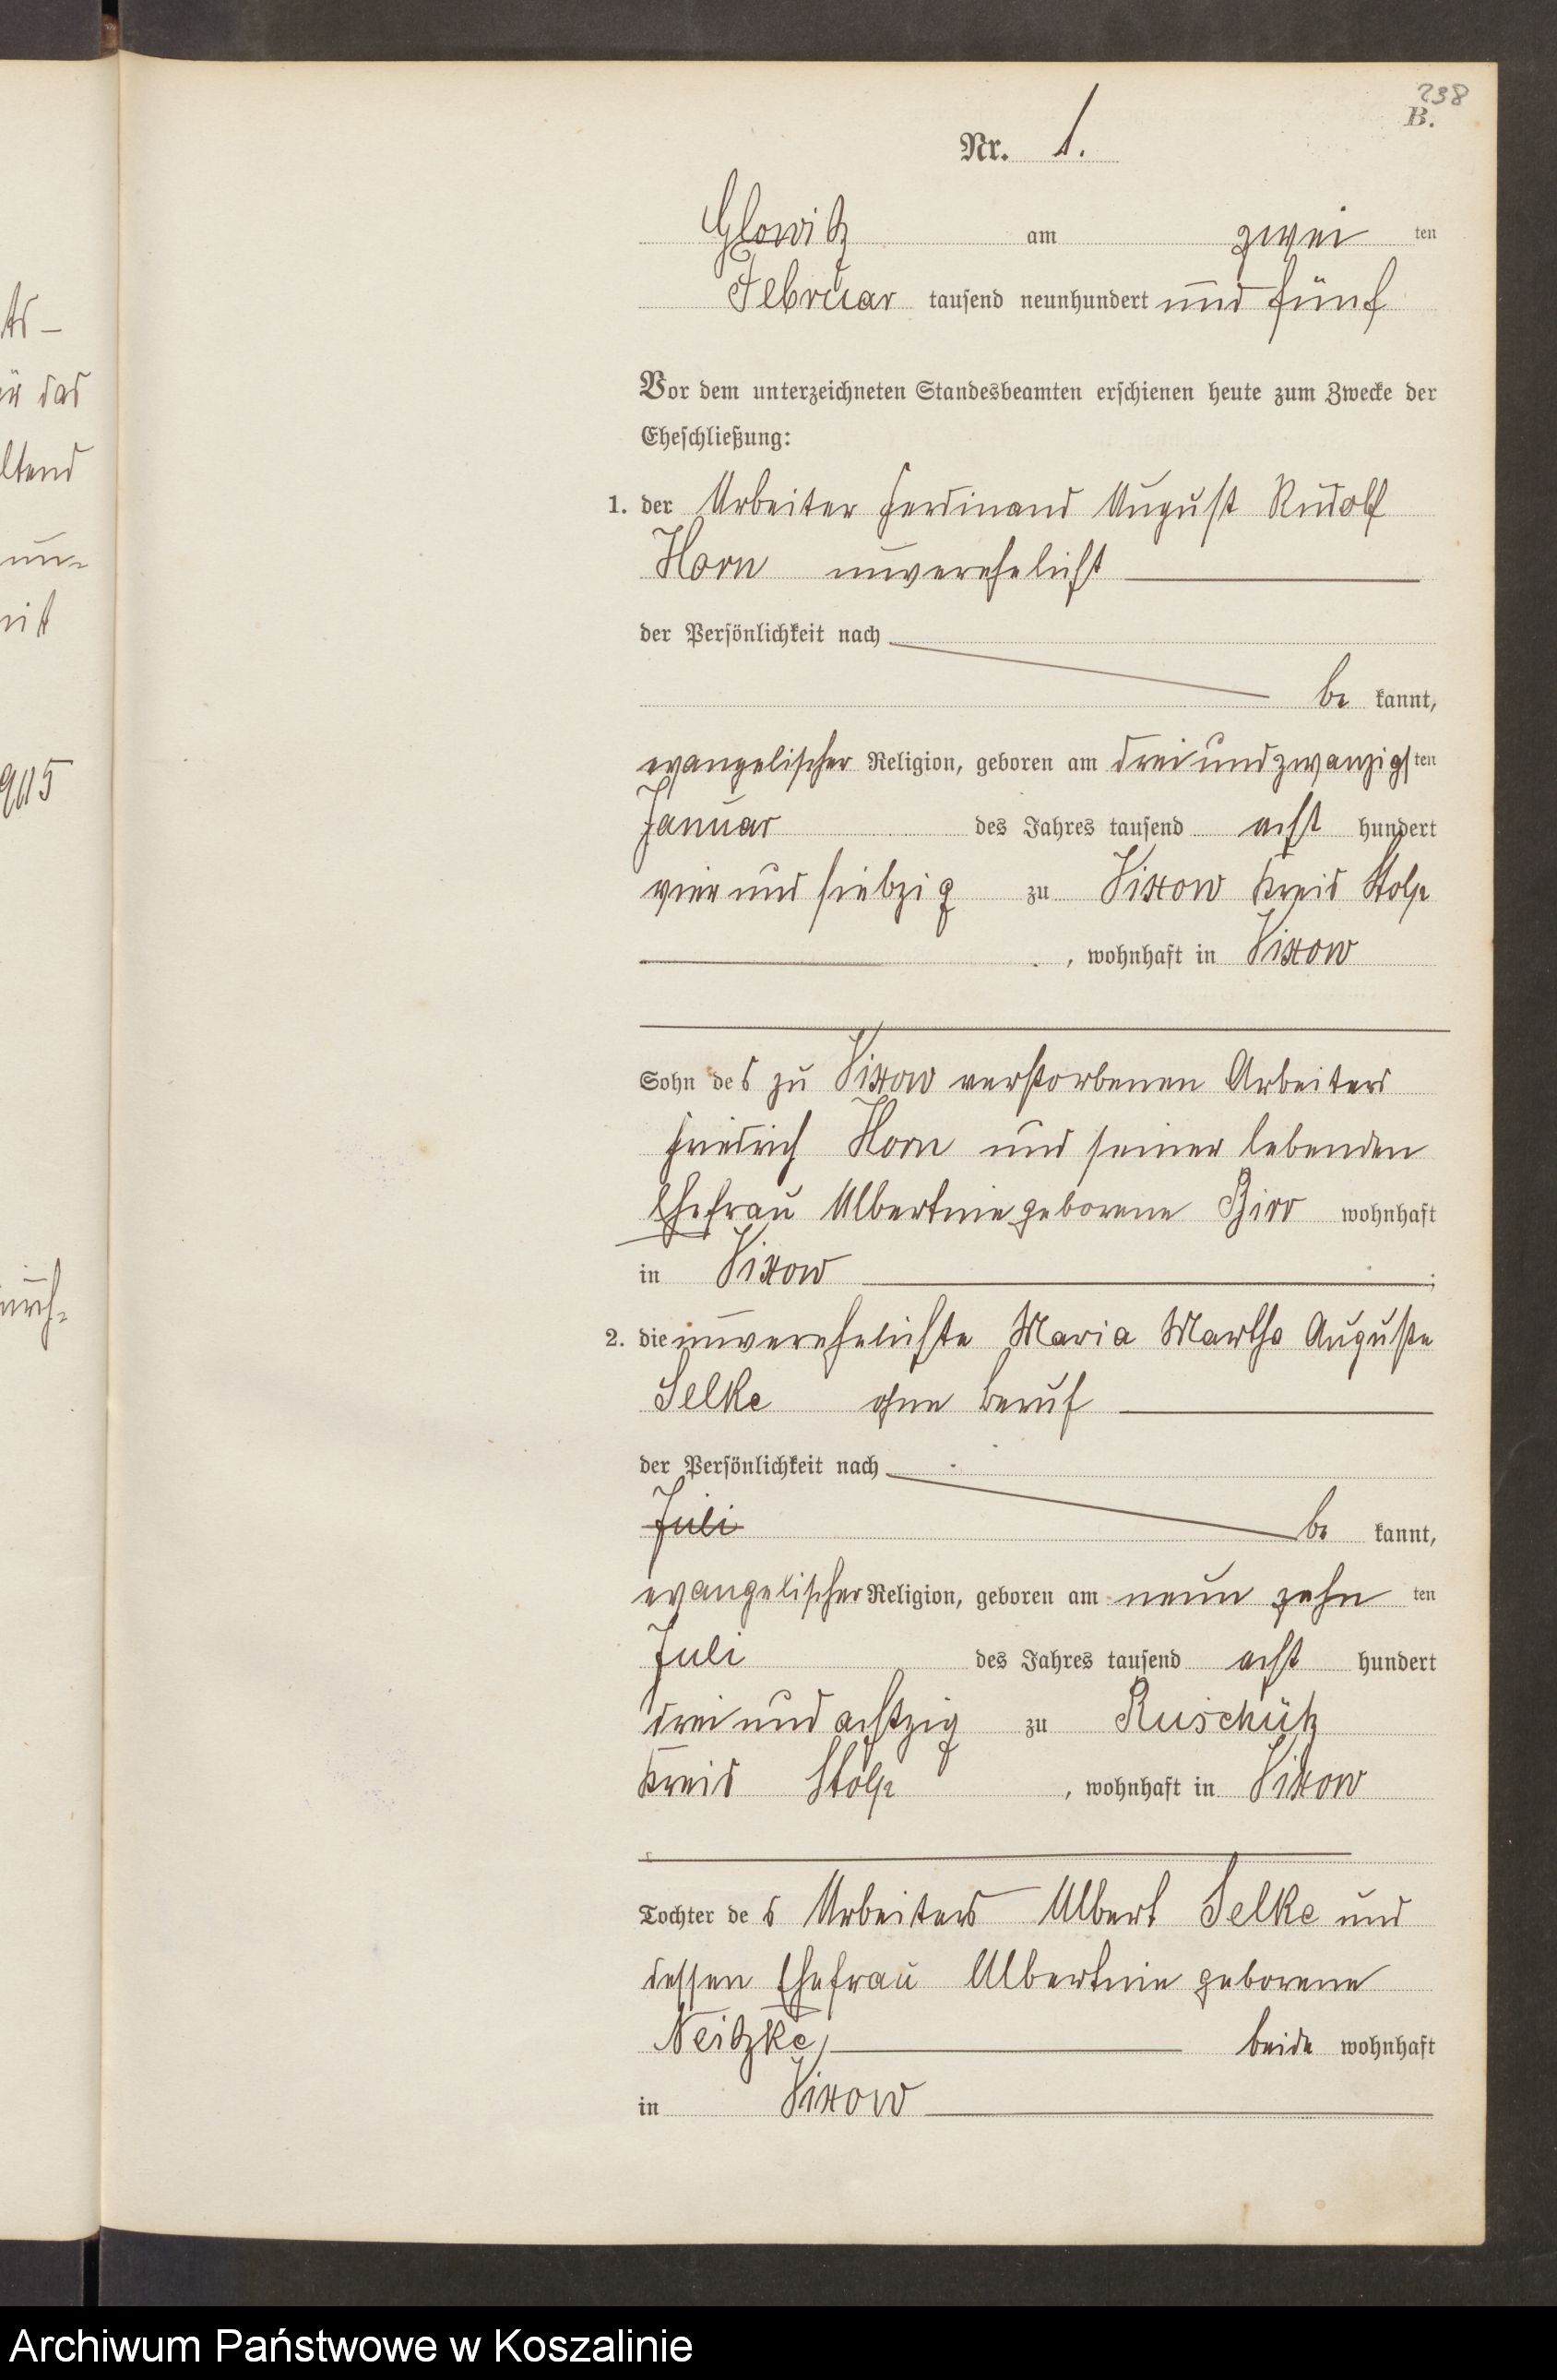 238
B.
Nr. 1.
Glowitz am zwei ten
Februar tausend neunhundert und fünf
Vor dem unterzeichneten Standesbeamten erschienen heute zum Zwecke der
Eheschließung:
1. der Arbeiter Ferdinand August Rudolf
Horn unverehelicht
der Persönlichkeit nach
be kannt,
evangelischer Religion, geboren am dreiundzwanzigsten
Januar des Jahres tausend acht hundert
vier und siebzig zu Vixow Kreis Stolp
, wohnhaft in Vixow
Sohn des zu Vixow verstorbenen Arbeiters
Friedrich Horn und seiner lebenden
Ehefrau Albertine geborene Birr wohnhaft
in Vixow ;
2. die unverehelichte Maria Martha Auguste
Selke ohne Beruf
der Persönlichkeit nach
Juli be kannt,
evangelischer Religion, geboren am neun zehn ten
Juli des Jahres tausend acht hundert
drei und achtzig zu Ruschütz
Kreis Stolp , wohnhaft in Vixow
Tochter des Arbeiters Albert Selke und
dessen Ehefrau Albertine geborene
Neitzke, beide wohnhaft
in Vixow
ür das
ltend
un-
mit
905
Archiwum Państwowe w Koszalinie